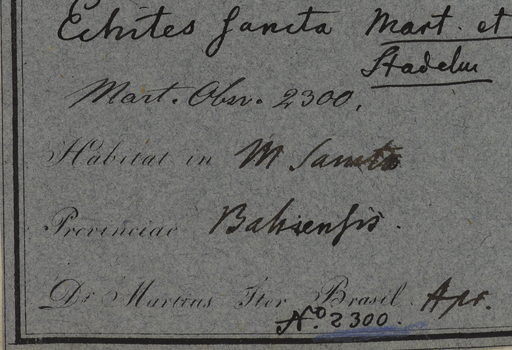 Echites sancta Mart. et
Stadelm
Mart. Obsv. 2300.
Habitat in M Sancto
Provinciae Bahiensis.
Dr Martius Iter Brasil. Apr.
No. 2300.